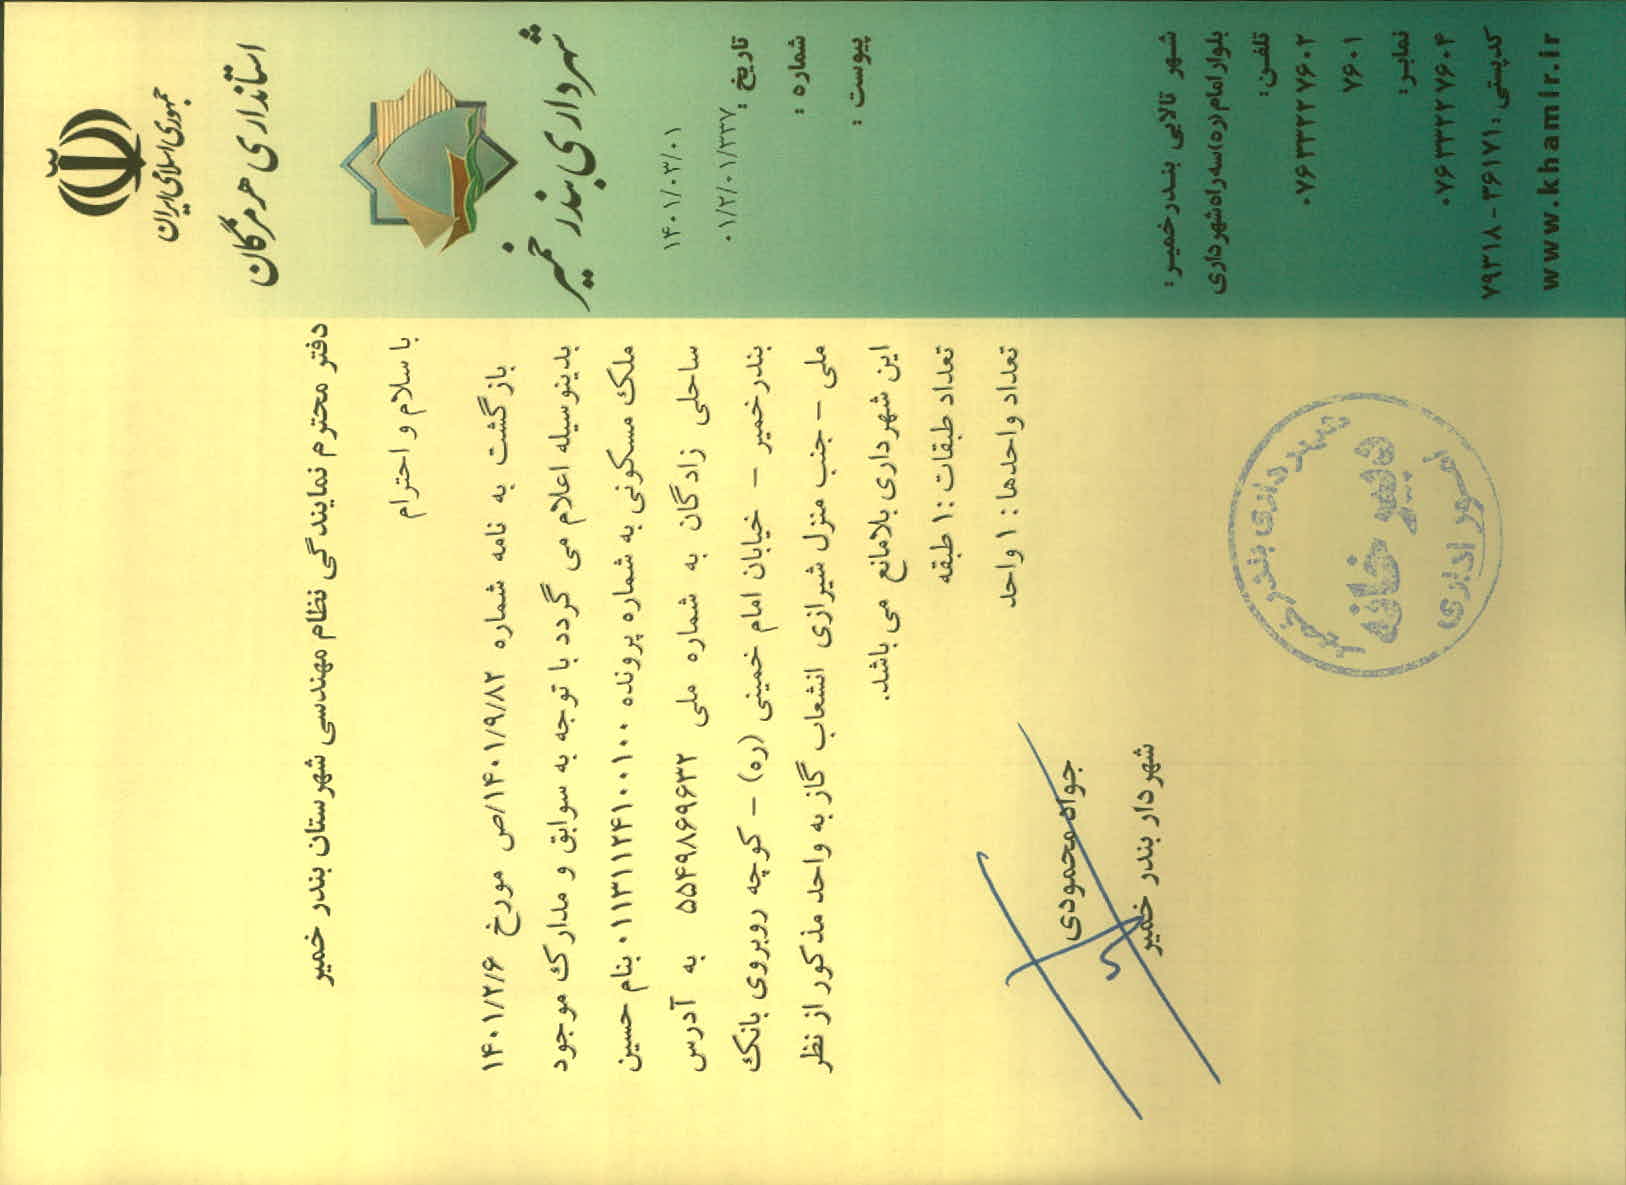 جمهوری اسلامی ایران
استانداری هرمزگان
شهرداری بندر خمیر
تاریخ :
۱۴۰۱/۰۳/۰۱
شماره :
۰۱/۲/۰۱/۳۳۷
پیوست :
دفتر محترم نمایندگی نظام مهندسی شهرستان بندر خمیر
با سلام و احترام
بازگشت به نامه شماره ۱۴۰۱/۹/۸۲/ص مورخ ۱۴۰۱/۲/۶
بدینوسیله اعلام می گردد با توجه به سوابق و مدارک موجود
ملک مسکونی به شماره پرونده ۰۱۱۳۱۱۲۴۱۰۰۱۰۰ بنام حسین
ساحلی زادگان به شماره ملی ۵۵۴۹۸۶۹۶۳۲ به آدرس
بندرخمیر - خیابان امام خمینی (ره) - کوچه روبروی بانک
ملی - جنب منزل شیرازی انشعاب گاز به واحد مذکور از نظر
این شهرداری بلامانع می باشد.
تعداد طبقات : ۱ طبقه
تعداد واحدها : ۱ واحد
جواد محمودی
شهردار بندر خمیر
شهرداری بندر خمیر
دبیرخانه
امور اداری
شهر تالابی بندرخمیر:
بلوار امام(ره)سه راه شهرداری
تلفن:
۰۷۶۳۳۲۲۷۶۰۲
۷۶۰۱
نمابر:
۰۷۶۳۳۲۲۷۶۰۴
کدپستی: ۳۶۱۷۱-۷۹۳۱۸
www.khamir.ir